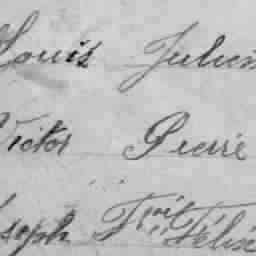 Louis Julien
Victor Pierre
Joseph Félix